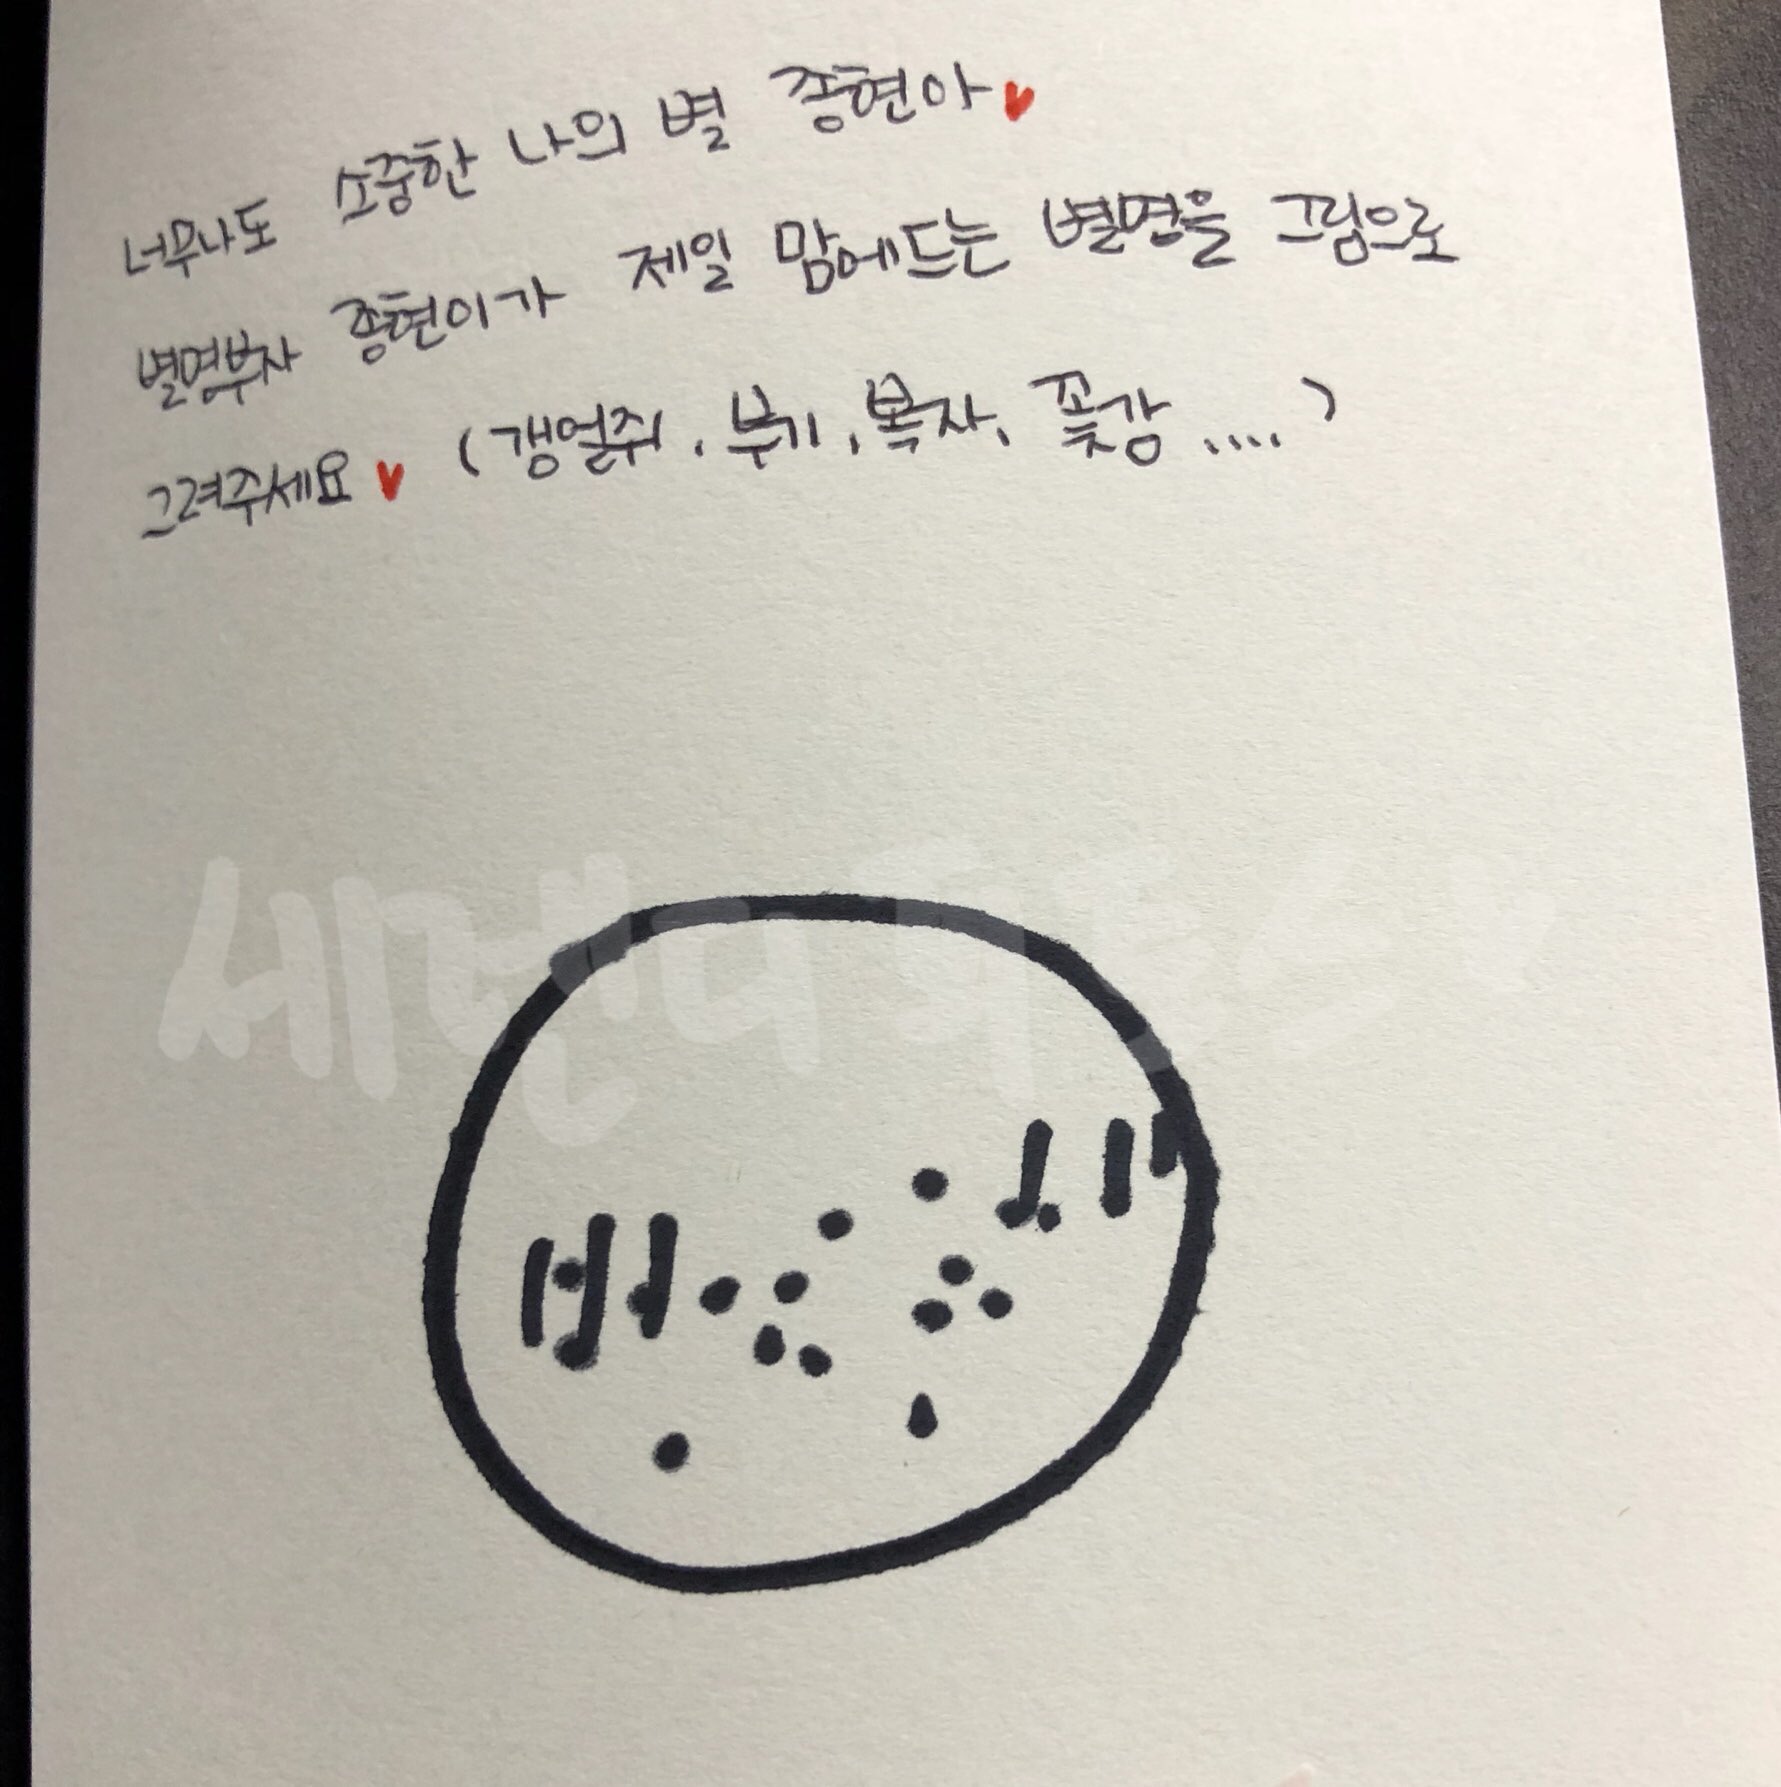 너무나도 소중한 나의 별 종현아♥
별명부자 종현이가 제일 맘에드는 별명을 그림으로
그려주세요♥ (갱얼쥐, 부기, 복자, 꽃감 ....)